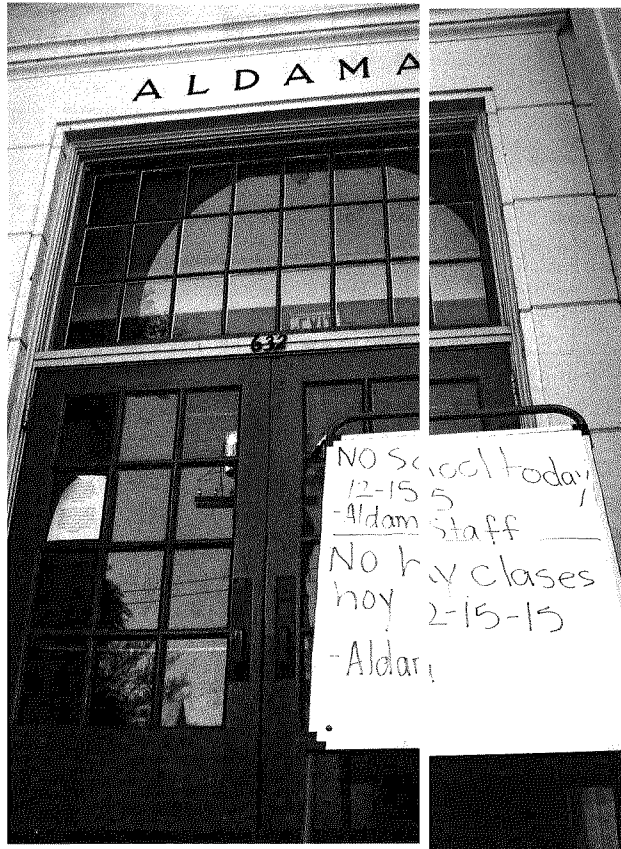 ALDAMA
632
No School today
12-15 5
-Aldam Staff
No h y clases
hoy 2-15-15
-Aldam